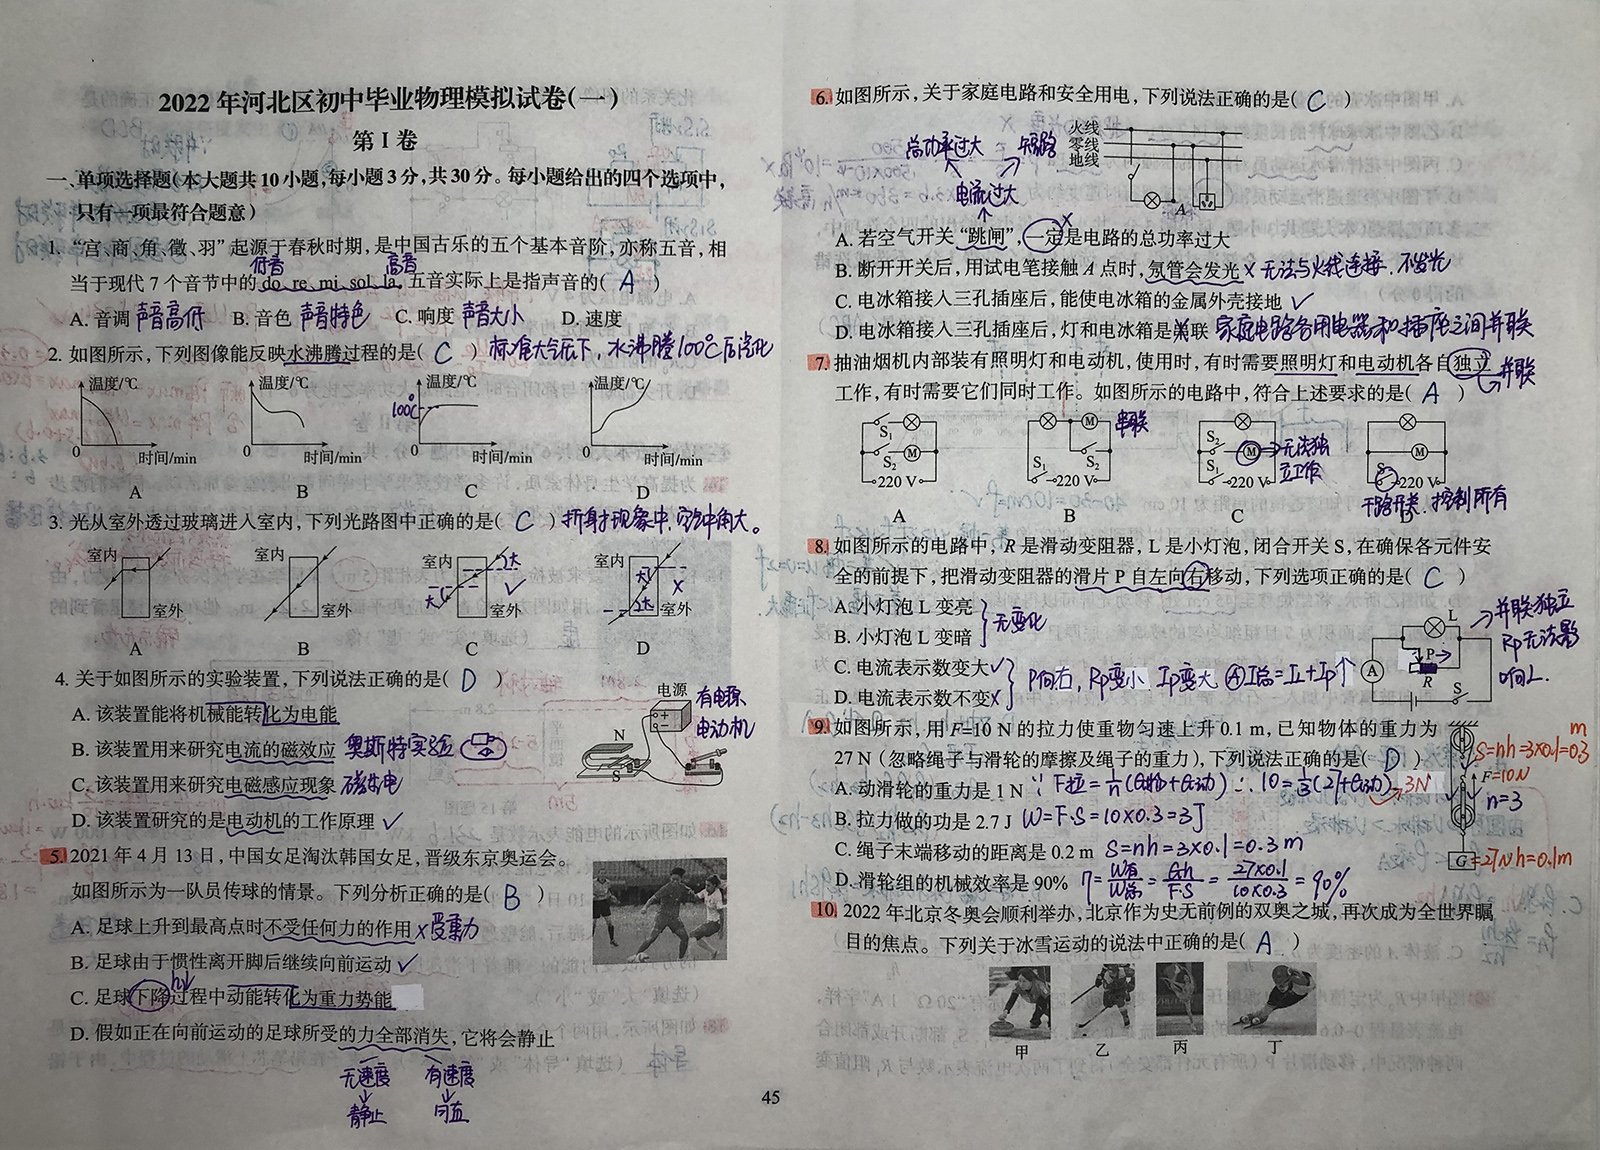 2022年河北区初中毕业物理模拟试卷(一)
第 I 卷
一、单项选择题(本大题共10小题,每小题3分,共30分。每小题给出的四个选项中,
只有一项最符合题意)
1. “宫、商、角、徵、羽”起源于春秋时期,是中国古乐的五个基本音阶,亦称五音,相
低音 高音
当于现代7个音节中的 do、re、mi、sol、la,五音实际上是指声音的( A )
A. 音调 声音高低 B. 音色 声音特色 C. 响度 声音大小 D. 速度
2. 如图所示,下列图像能反映水沸腾过程的是( C ) 标准大气压下,水沸腾100℃后汽化
温度/℃ 温度/℃ 温度/℃ 温度/℃
100℃
0 时间/min 0 时间/min 0 时间/min 0 时间/min
A B C D
3. 光从室外透过玻璃进入室内,下列光路图中正确的是( C ) 折射现象中,空气中角大。
室内 室内 室内 大 室内
大 ✓ 大 ×
室外 室外 室外 室外
A B C D
4. 关于如图所示的实验装置,下列说法正确的是( D )
A. 该装置能将机械能转化为电能
B. 该装置用来研究电流的磁效应 奥斯特实验
C. 该装置用来研究电磁感应现象 磁生电
D. 该装置研究的是电动机的工作原理 ✓
电源 有电源
电动机
N
S
5. 2021年4月13日,中国女足淘汰韩国女足,晋级东京奥运会。
如图所示为一队员传球的情景。下列分析正确的是( B )
A. 足球上升到最高点时不受任何力的作用 ×受重力
B. 足球由于惯性离开脚后继续向前运动 ✓
h↓
C. 足球下降过程中动能转化为重力势能
D. 假如正在向前运动的足球所受的力全部消失,它将会静止
无速度 有速度
↓ ↓
静止 匀直
45
6. 如图所示,关于家庭电路和安全用电,下列说法正确的是( C )
总功率过大 短路
电流过大
火线
零线
地线
A
A. 若空气开关“跳闸”,一定是电路的总功率过大
B. 断开开关后,用试电笔接触 A 点时,氖管会发光 × 无法与火线连接,不发光
C. 电冰箱接入三孔插座后,能使电冰箱的金属外壳接地 ✓
D. 电冰箱接入三孔插座后,灯和电冰箱是串联 家庭电路各用电器和插座之间并联
7. 抽油烟机内部装有照明灯和电动机,使用时,有时需要照明灯和电动机各自独立
并联
工作,有时需要它们同时工作。如图所示的电路中,符合上述要求的是( A )
S₁ M 串联 S₂ M →无法独立工作 M
S₂ M S₁ S₂ S₁ S
220 V 220 V 220 V 220 V
干路开关,控制所有
A B C D
8. 如图所示的电路中,R 是滑动变阻器,L 是小灯泡,闭合开关 S,在确保各元件安
全的前提下,把滑动变阻器的滑片 P 自左向右移动,下列选项正确的是( C )
A. 小灯泡 L 变亮
B. 小灯泡 L 变暗
无变化
C. 电流表示数变大✓
D. 电流表示数不变×
P向右,Rp变小 Ip变大 Ⓐ I总=I_L+Ip↑
L
A P R S
→并联独立
Rp无法影
响L.
9. 如图所示,用 F=10 N 的拉力使重物匀速上升0.1 m,已知物体的重力为
27 N(忽略绳子与滑轮的摩擦及绳子的重力),下列说法正确的是( D )
A. 动滑轮的重力是 1 N ∵ F拉=1/n(G物+G动) ∴10=1/3(27+G动) 3N
B. 拉力做的功是 2.7 J W=F·S=10×0.3=3J
C. 绳子末端移动的距离是0.2 m S=nh=3×0.1=0.3m
D. 滑轮组的机械效率是90% η=W有/W总=Gh/F·S=27×0.1/10×0.3=90%
m
S=nh=3×0.1=0.3
F=10N
n=3
G=27N h=0.1m
10. 2022年北京冬奥会顺利举办,北京作为史无前例的双奥之城,再次成为全世界瞩
目的焦点。下列关于冰雪运动的说法中正确的是( A )
甲 乙 丙 丁